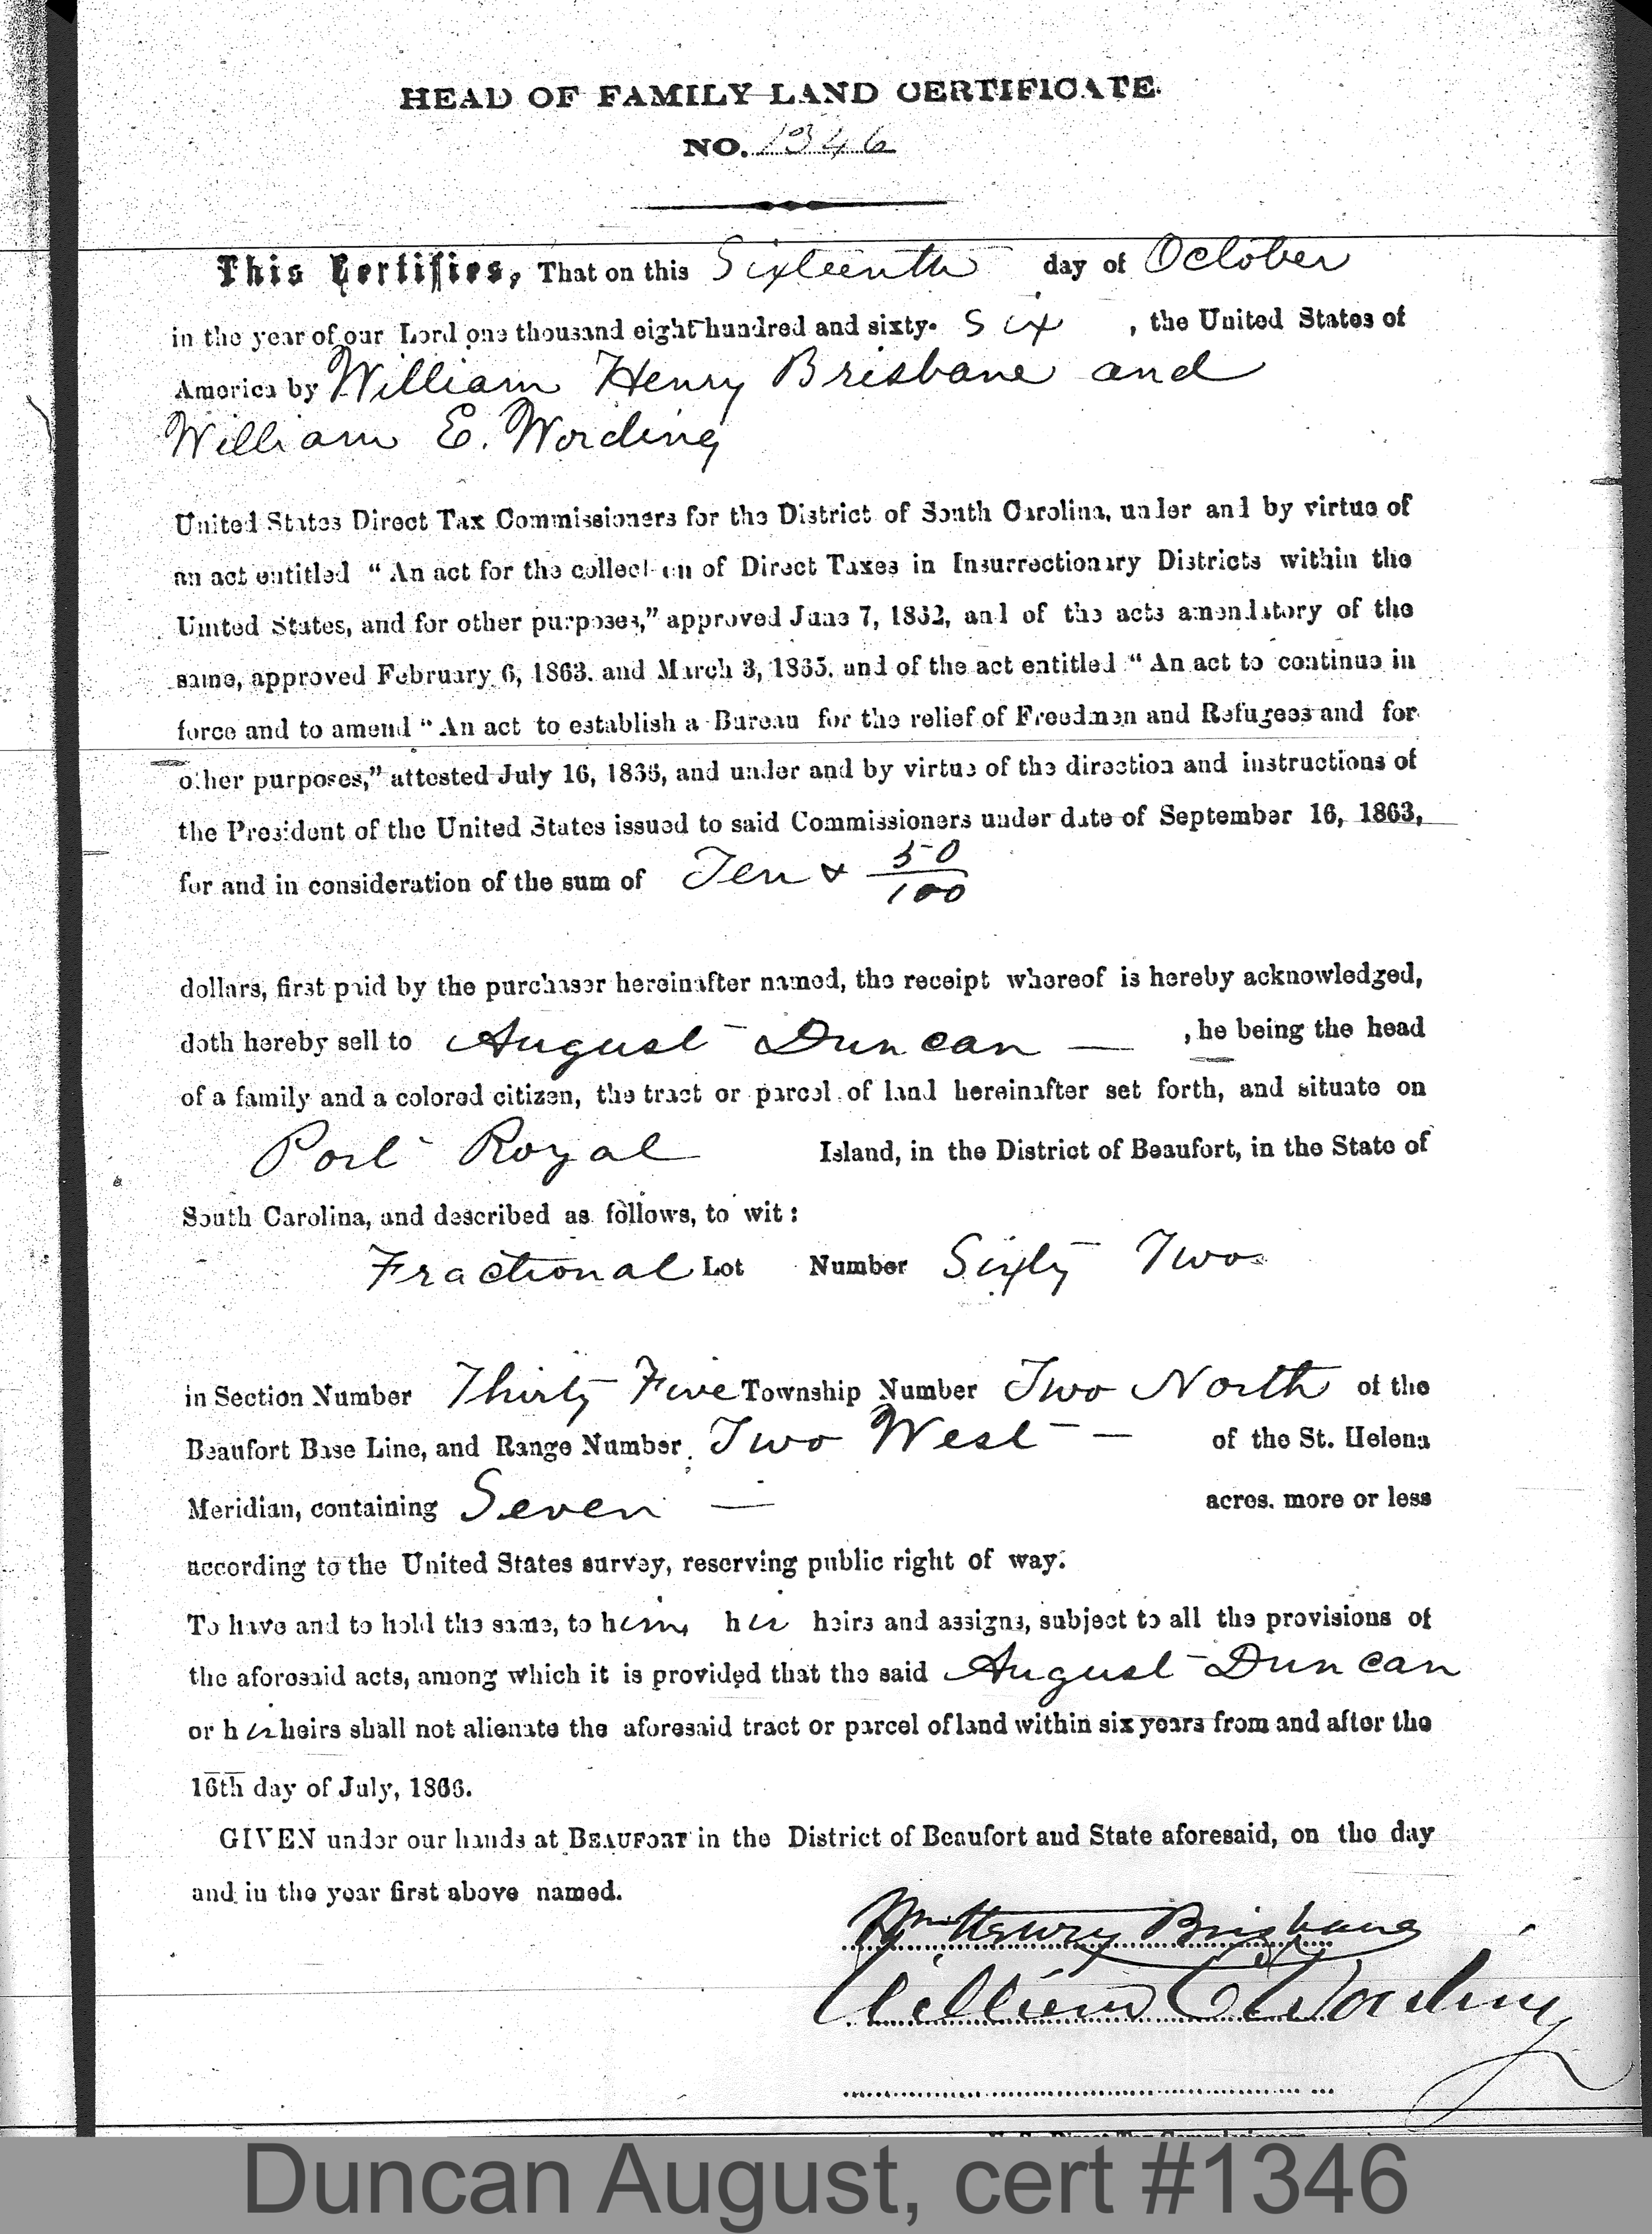 HEAD OF FAMILY LAND CERTIFICATE.
NO. 1346
This Certifies, That on this Sixteenth day of October
in the year of our Lord one thousand eight hundred and sixty- Six , the United States of
America by William Henry Brisbane and
William E. Wording
United States Direct Tax Commissioners for the District of South Carolina, under and by virtue of
an act entitled "An act for the collection of Direct Taxes in Insurrectionary Districts within the
United States, and for other purposes," approved June 7, 1862, and of the acts amendatory of the
same, approved February 6, 1863. and March 3, 1865. and of the act entitled "An act to continue in
force and to amend "An act to establish a Bureau for the relief of Freedmen and Refugees and for
other purposes," attested July 16, 1866, and under and by virtue of the direction and instructions of
the President of the United States issued to said Commissioners under date of September 16, 1863,
for and in consideration of the sum of Ten & 50/100
dollars, first paid by the purchaser hereinafter named, the receipt whereof is hereby acknowledged,
doth hereby sell to August Duncan — , he being the head
of a family and a colored citizen, the tract or parcel of land hereinafter set forth, and situate on
Port Royal Island, in the District of Beaufort, in the State of
South Carolina, and described as follows, to wit:
Fractional Lot Number Sixty Two
in Section Number Thirty Five Township Number Two North of the
Beaufort Base Line, and Range Number Two West — of the St. Helena
Meridian, containing Seven — acres. more or less
according to the United States survey, reserving public right of way.
To have and to hold the same, to him, his heirs and assigns, subject to all the provisions of
the aforesaid acts, among which it is provided that the said August Duncan
or his heirs shall not alienate the aforesaid tract or parcel of land within six years from and after the
16th day of July, 1866.
GIVEN under our hands at BEAUFORT in the District of Beaufort and State aforesaid, on the day
and in the year first above named.
Wm Henry Brisbane
William E. Wording
Duncan August, cert #1346